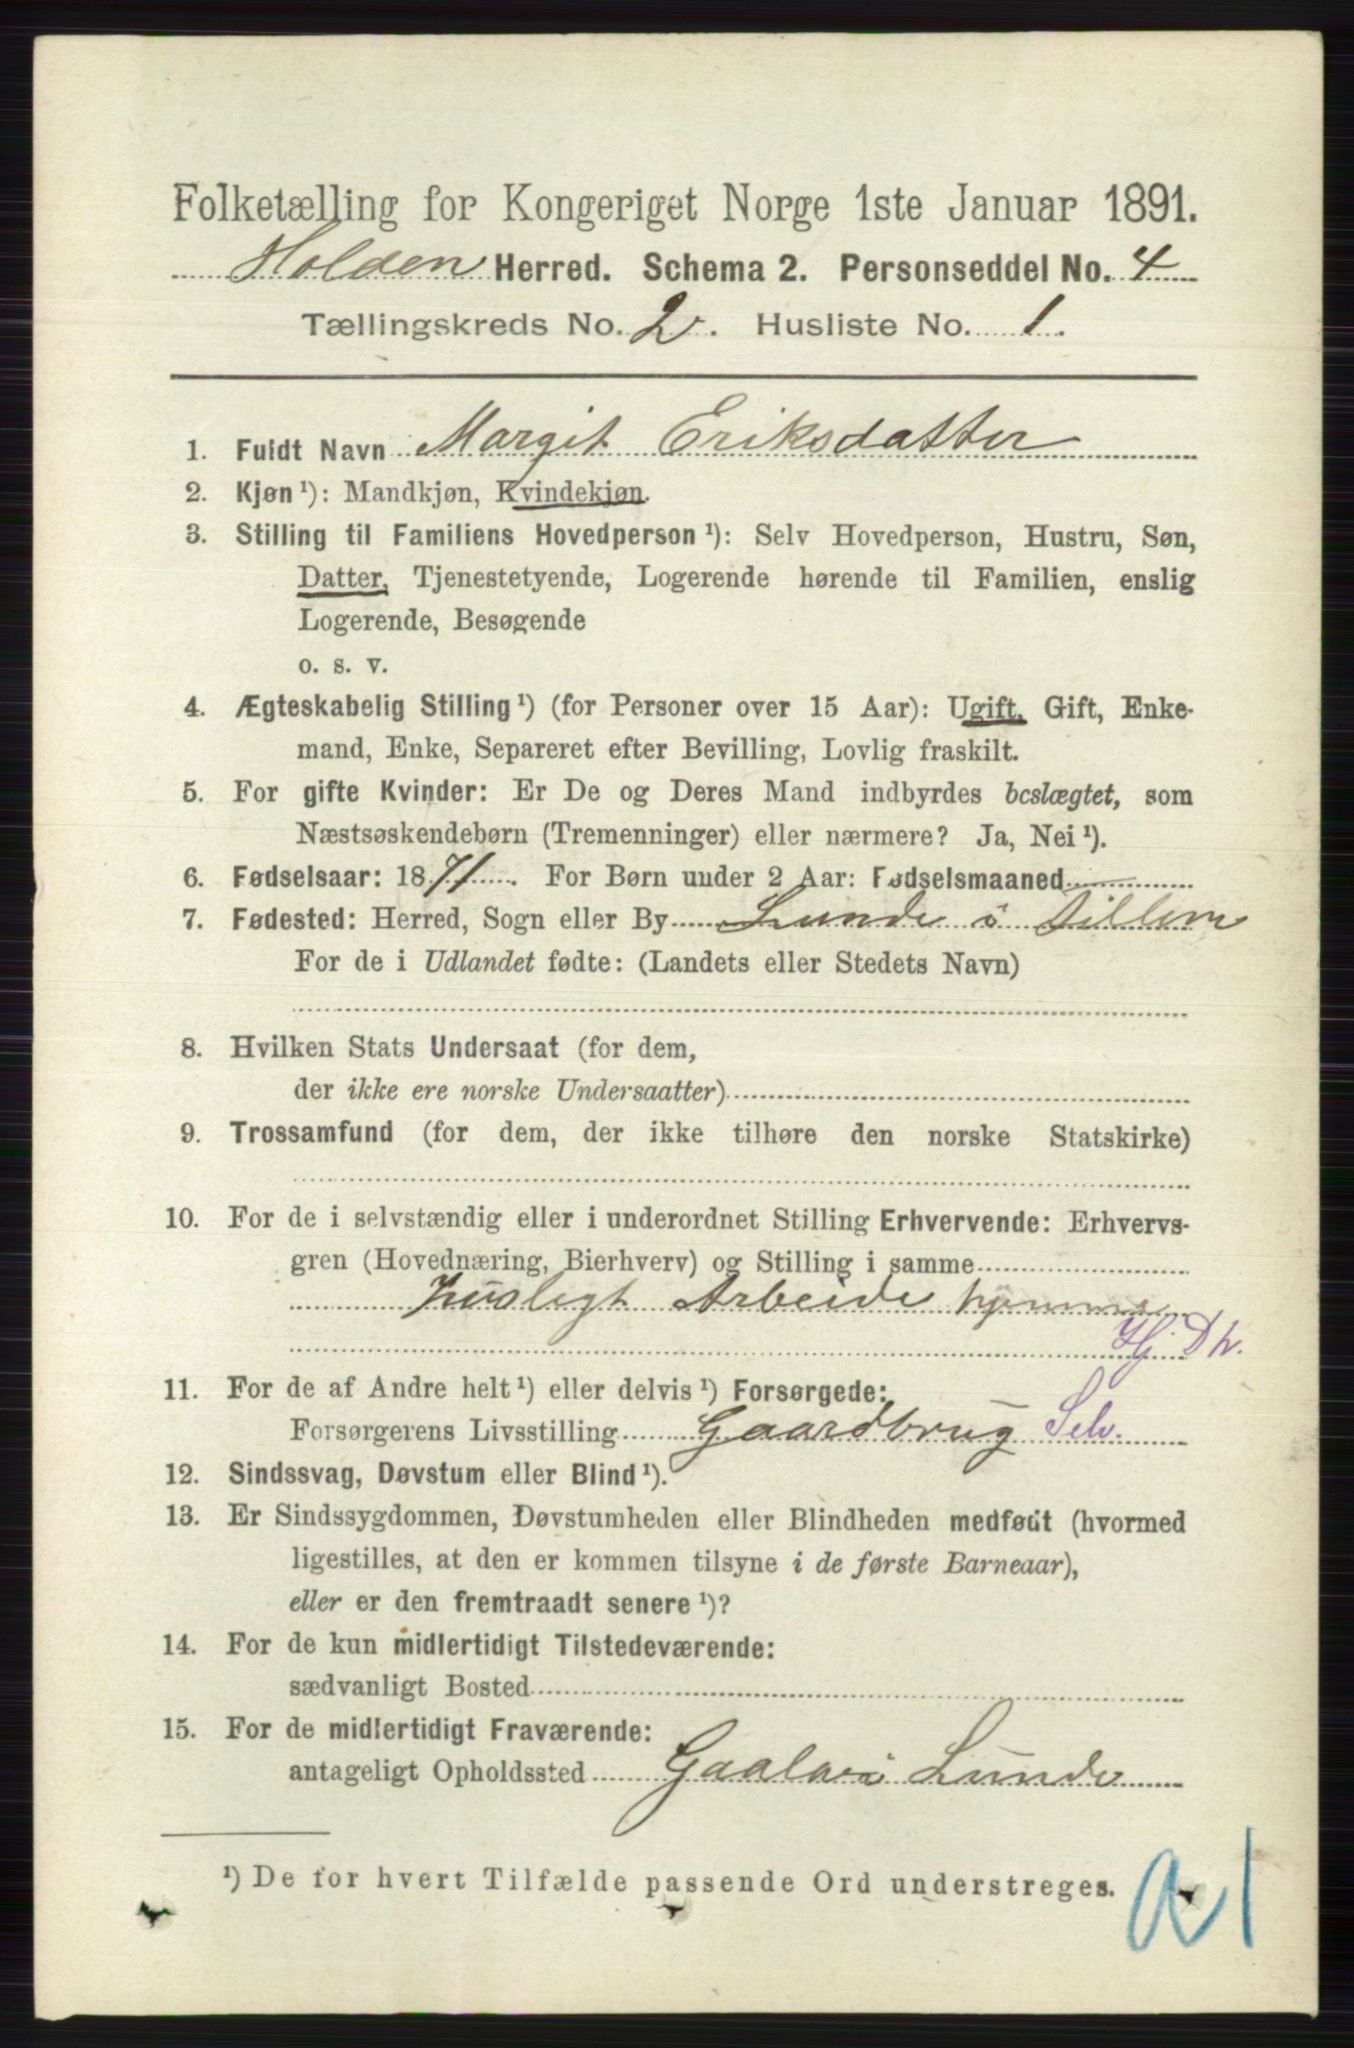 Folketælling for Kongeriget Norge 1ste Januar 1891.
Holden Herred. Schema 2. Personseddel No. 4
Tællingskreds No. 2. Husliste No. 1.
1. Fuldt Navn Margit Eriksdatter
2. Kjøn ¹): Mandkjøn, Kvindekjøn.
3. Stilling til Familiens Hovedperson ¹): Selv Hovedperson, Hustru, Søn,
Datter, Tjenestetyende, Logerende hørende til Familien, enslig
Logerende, Besøgende
o. s. v.
4. Ægteskabelig Stilling ¹) (for Personer over 15 Aar): Ugift, Gift, Enke-
mand, Enke, Separeret efter Bevilling, Lovlig fraskilt.
5. For gifte Kvinder: Er De og Deres Mand indbyrdes beslægtet, som
Næstsøskendebørn (Tremenninger) eller nærmere? Ja, Nei ¹).
6. Fødselsaar: 1871. For Børn under 2 Aar: Fødselsmaaned
7. Fødested: Herred, Sogn eller By Lunde i
For de i Udlandet fødte: (Landets eller Stedets Navn)
8. Hvilken Stats Undersaat (for dem,
der ikke ere norske Undersaatter)
9. Trossamfund (for dem, der ikke tilhøre den norske Statskirke)
10. For de i selvstændig eller i underordnet Stilling Erhvervende: Erhvervs-
gren (Hovednæring, Bierhverv) og Stilling i samme
Husligt Arbeide hjemme
Hj. Dh.
11. For de af Andre helt ¹) eller delvis ¹) Forsørgede:
Forsørgerens Livsstilling Gaardbrug Selv.
12. Sindssvag, Døvstum eller Blind ¹).
13. Er Sindssygdommen, Døvstumheden eller Blindheden medfødt (hvormed
ligestilles, at den er kommen tilsyne i de første Barneaar),
eller er den fremtraadt senere ¹)?
14. For de kun midlertidigt Tilstedeværende:
sædvanligt Bosted
15. For de midlertidigt Fraværende:
antageligt Opholdssted Lunde
¹) De for hvert Tilfælde passende Ord understreges.